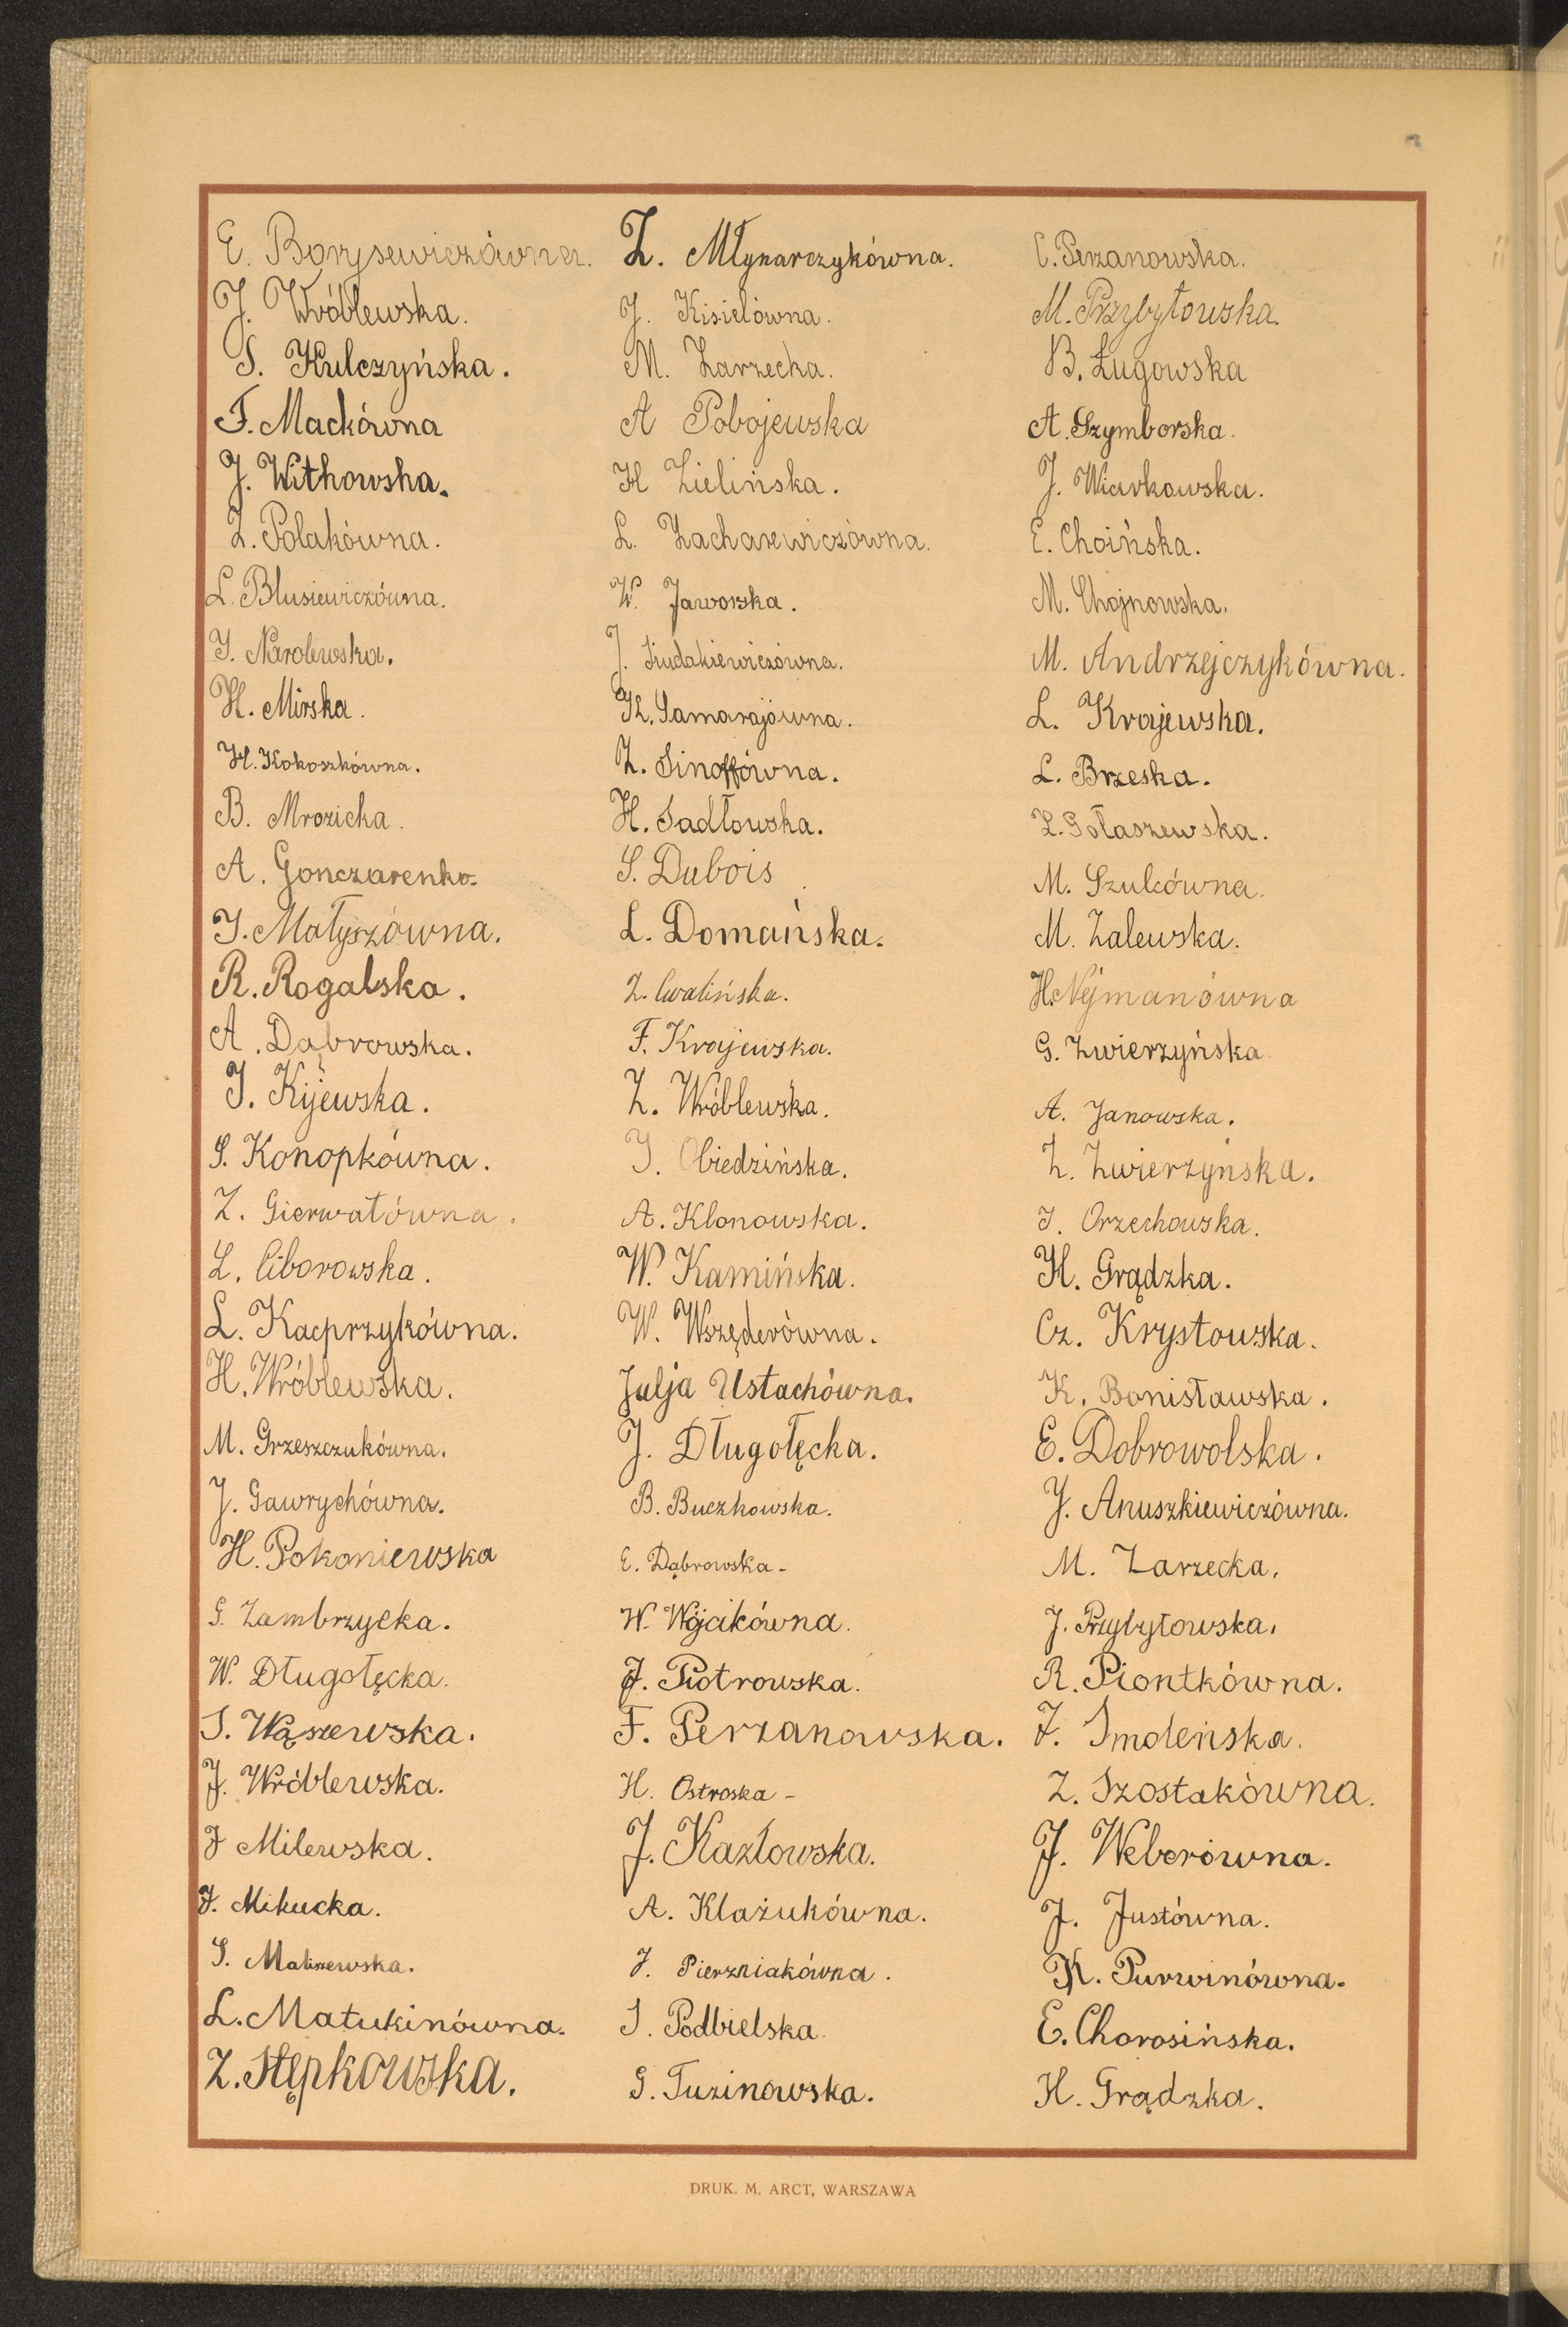 E. Borysewiczówna.
J. Wróblewska.
S. Kulczyńska.
F. Maćkówna
J. Witkowska.
Z. Polakówna.
L. Blusiewiczówna.
J. Narolewska.
H. Mirska.
H. Kokoszkówna.
B. Mrozicka.
A. Gonczarenko.
J. Małyszówna.
R. Rogalska.
A. Dąbrowska.
J. Kijewska.
S. Konopkówna.
Z. Gierwatówna.
L. Ciborowska.
L. Kacprzykówna.
H. Wróblewska.
M. Grzeszczukówna.
J. Gawrychówna.
H. Pokoniewska
G. Zambrzycka.
W. Długołęcka.
S. Wąszewska.
J. Wróblewska.
J Milewska.
J. Mikucka.
S. Maliszewska.
L. Matukinówna.
Z. Stępkowska.
Z. Młynarczykówna.
J. Kisielówna.
M. Zarzecka.
A Pobojewska
H Zielińska.
L. Zacharewiczówna.
W. Jaworska.
J. Siudakiewiczówna.
K. Samarajówna.
Z. Sinoffówna.
H. Sadłowska.
S. Dubois
L. Domańska.
Z. Cwalińska.
F. Krajewska.
Z. Wróblewska.
J. Obiedzińska.
A. Klonowska.
W. Kamińska.
W. Wszęderówna.
Julja Ustachówna.
J. Długołęcka.
B. Buczkowska.
E. Dąbrowska-
W. Wójcikówna.
J. Piotrowska.
F. Perzanowska.
H. Ostroska-
J. Kazłowska.
A. Klażukówna.
J. Pierzniakówna.
S. Podbielska.
G. Tuzinowska.
C. Perzanowska.
M. Przybyłowska.
B. Ługowska
A. Szymborska.
J. Wiarkowska.
E. Choińska.
M. Chojnowska.
M. Andrzejczykówna.
L. Krajewska.
L. Brzeska.
Z. Gołaszewska.
M. Szulcówna.
M. Zalewska.
H. Nejmanówna
G. Zwierzyńska
A. Janowska.
Z. Zwierzyńska.
J. Orzechowska.
H. Grądzka.
Cz. Krystowska.
K. Bonisławska.
E. Dobrowolska.
J. Anuszkiewiczówna.
M. Zarzecka.
J. Przybyłowska.
R. Piontkówna.
J. Smoleńska.
Z. Szostakówna.
J. Weberówna.
J. Justówna.
K. Purwinówna.
E. Chorosińska.
H. Grądzka.
DRUK. M. ARCT, WARSZAWA